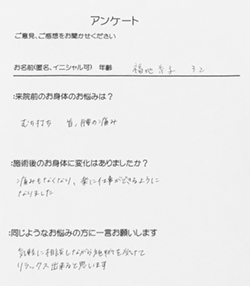 アンケート
ご意見、ご感想をお聞かせください
お名前(匿名、イニシャル可) 年齢 32
:来院前のお身体のお悩みは?
むち打ち 首、腰の痛み
:施術後のお身体に変化はありましたか?
痛みもなくなり、楽に仕事ができるように
なりました
:同じようなお悩みの方に一言お願いします
気軽に相談しながら施術を受けて
リラックス出来ると思います